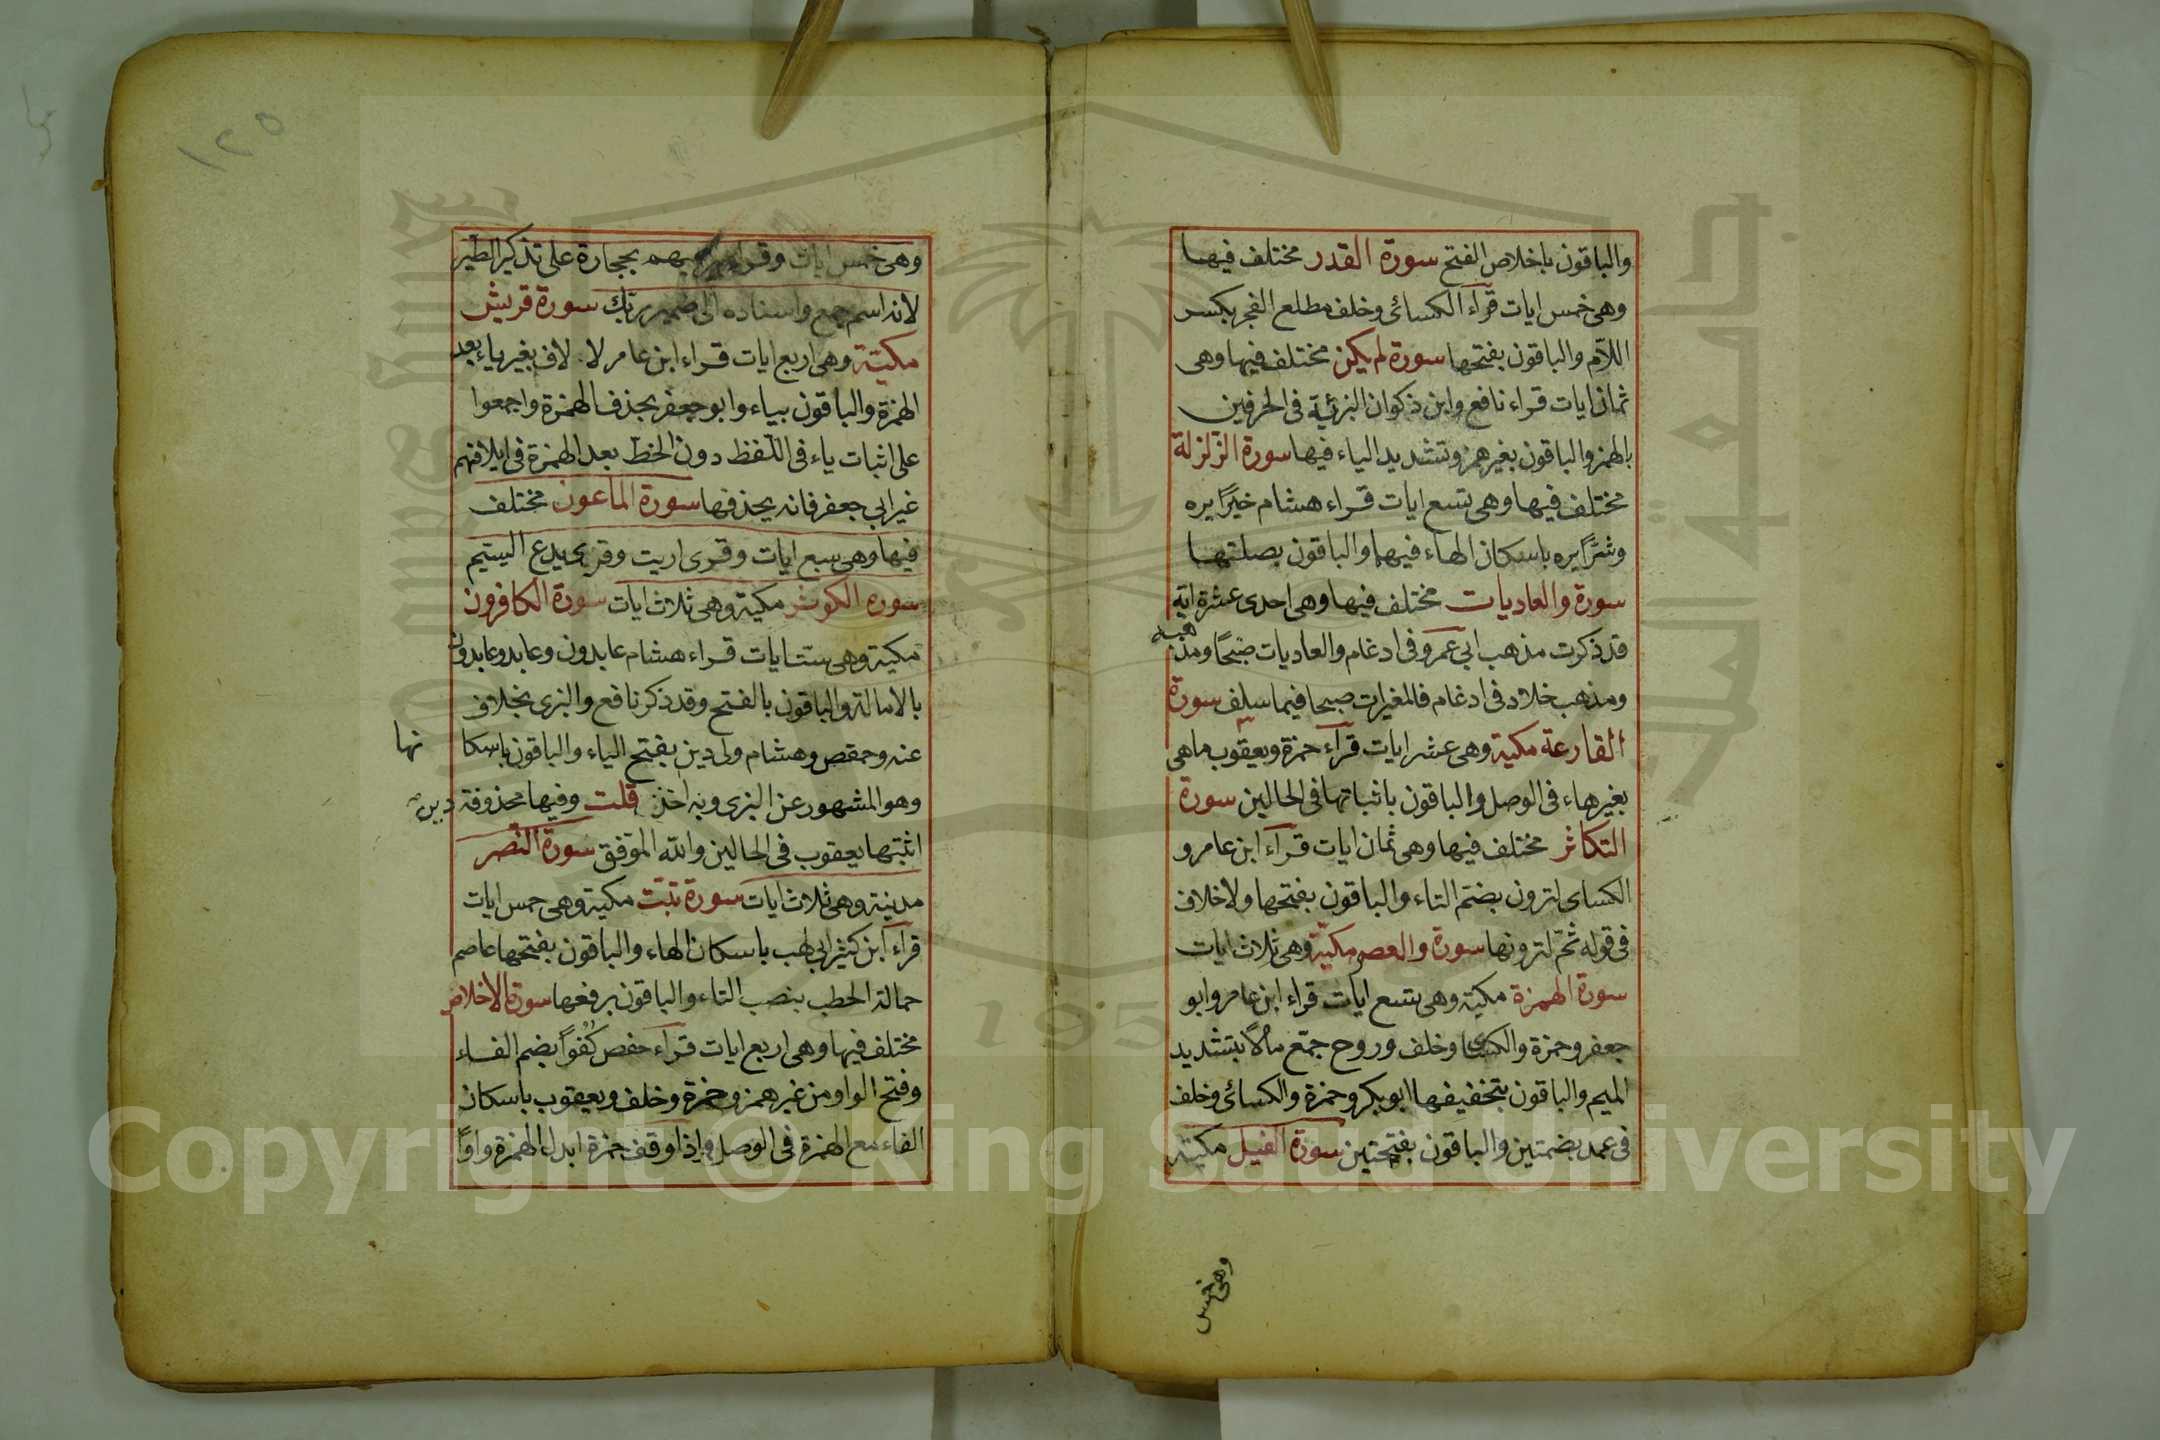 والباقون باخلاص الفتح سورة القدر مختلف فيها
وهى خمس ايات قرأ الكسائى وخلف مطلع الفجر بكسر
اللام والباقون بفتحها سورة لم يكن مختلف فيها وهى
ثمان ايات قراء نافع وابن ذكوان البرئية فى الحرفين
بالهمز والباقون بغير همز وتشديد الياء فيها سورة الزلزلة
مختلف فيها وهى تسع ايات قراء هشام خيرًا يره
وشرًا يره باسكان الهاء فيهما والباقون بصلتها
سورة والعاديات مختلف فيها وهى احدى عشرة اية
قد ذكرت مذهب ابى عمرو فى ادغام والعاديات ضبحًا ومذ
هبه
ومذهب خلاد فى ادغام فالمغيرات صبحا فيما سلف سورة
القارعة مكية وهى عشر ايات قرأ حمزة ويعقوب ماهى
بغير هاء فى الوصل والباقون باثباتها فى الحالين سورة
التكاثر مختلف فيها وهى ثمان ايات قراء ابن عامر و
الكساى لترون بضم التاء والباقون بفتحها ولا خلاف
فى قوله ثم لترونها سورة والعصر مكية وهى ثلاث ايات
سورة الهمزة مكية وهى تسع ايات قراء ابن عامر وابو
جعفر وحمزة والكساى وخلف وروح جمّع مالًا بتشديد
الميم والباقون بتخفيفها ابو بكر وحمزة والكسائى وخلف
فى عمد بضمتين والباقون بفتحتين سورة الفيل مكية
وهى خمس
١٢٥
وهى خمس ايات وقراء بحجارة على تذكير الطير
لانه اسم جمع واسناده الى ضمير ربك سورة قريش
مكية وهى اربع ايات قراء ابن عامر لالاف بغير ياء بعد
الهمزة والباقون بياء وابو جعفر بحذف الهمزة واجمعوا
على اثبات ياء فى اللفظ دون الخط بعد الهمزة فى ايلافهم
غير ابى جعفر فانه يحذفها سورة الماعون مختلف
فيها وهى سبع ايات وقرى اريت يدع اليتيم
سوره الكوثر مكية وهى ثلاث ايات سورة الكافرون
مكية وهى ست ايات قراء هشام عابدون وعابد وعابدون
بالامالة والباقون بالفتح وقد ذكر نافع والبزى بخلاف
عنه وحفص وهشام ولى دين بفتح الياء والباقون باسكا
نها
وهو المشهور عن البزى وبه اخذ قلت وفيها محذوفة دين
اثبتها يعقوب فى الحالين والله الموفق سورة النصر
مدنية وهى ثلاث ايات سورة تبت مكية وهى خمس ايات
قرأ ابن كثير ابى لهب باسكان الهاء والباقون بفتحها عاصم
حمالة الحطب بنصب التاء والباقون برفعها سورة الاخلاص
مختلف فيها وهى اربع ايات قراء حفص كُفُوًا بضم الفاء
وفتح الواو من غير همز وحمزة وخلف ويعقوب باسكان
الفاء مع الهمزة فى الوصل واذا وقف حمزة ابدل الهمزة واوًا
جامعة الملك سعود
1957
Copyright © King Saud University